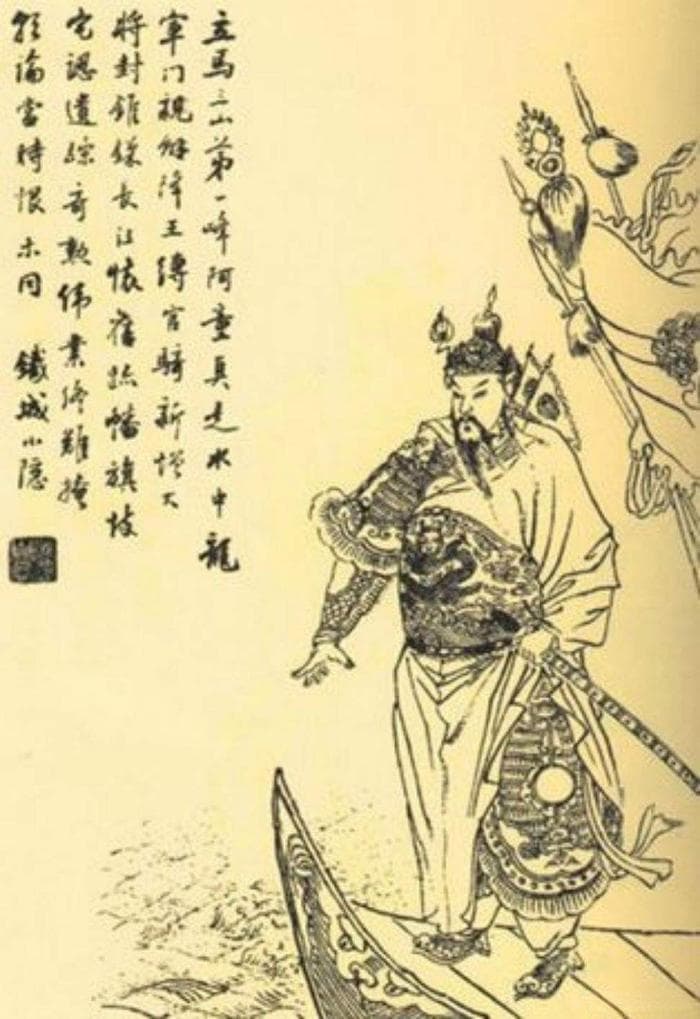 立馬三山第一峰阿童真是水中龍
軍門親解降王縛官騎新增大
將封錐鎖長江懷舊跡幡旗故
宅認遺踪奇勳偉業終難掩
論當時恨不同 鐵城小隱